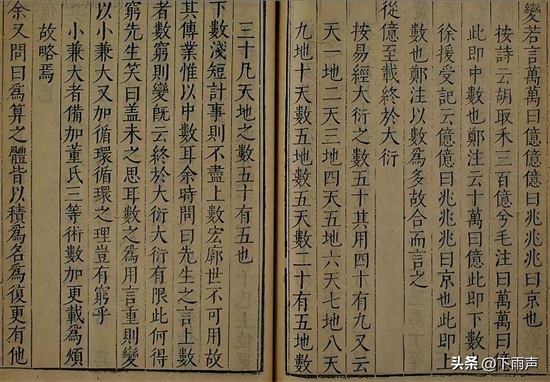 變若言萬萬曰億萬萬億曰兆萬萬兆曰京也
按詩云胡取禾三百億兮毛注曰萬萬曰億
此即中數也鄭注云十萬曰億此即下數也
徐援受記云億億曰兆兆兆曰京也此即上
數也鄭注以數爲多故合而言之
從億至載終於大衍
按易經大衍之數五十其用四十有九又云
天一地二天三地四天五地六天七地八天
九地十天數五地數五天數二十有五地數
三十凡天地之數五十有五也
下數淺短計事則不盡上數宏廓世不可用故
其傳業惟以中數耳余時問曰先生之言上數
者數窮則變旣云終於大衍大衍有限此何得
窮先生笑曰蓋未之思耳數之爲用言重則變
以小兼大又加循環循環之理豈有窮乎
小兼大者備加董氏三等術數加更載爲煩
故略焉
余又問曰爲算之體皆以積爲名爲復更有他
头条 @下雨声